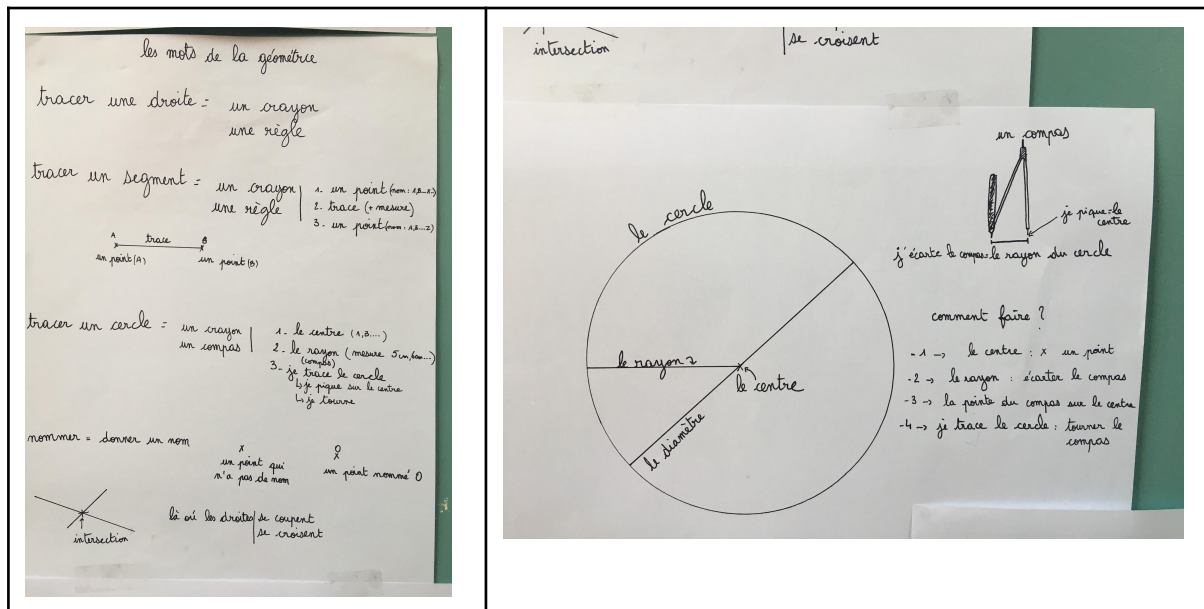 les mots de la géométrie
tracer une droite = un crayon
une règle
tracer un segment = un crayon
une règle
1. un point (nom : A,B...Z.)
2. trace (+ mesure)
3 - un point (nom : A,B...Z)
A trace B
un point (A) un point (B)
tracer un cercle = un crayon
un compas
1 - le centre (A,B....)
2 - le rayon (mesure 5cm, 6cm...)
(compas)
3 - je trace le cercle
↳ je pique sur le centre
↳ je tourne
nommer = donner un nom
x
un point qui
n'a pas de nom
O
x
un point nommé O
intersection
là où les droites se coupent
se croisent
intersection
se croisent
le cercle
le rayon
le centre
le diamètre
un compas
je pique = le
centre
j'écarte le compas = le rayon du cercle
comment faire ?
- 1 → le centre : x un point
- 2 → le rayon : écarter le compas
- 3 → la pointe du compas sur le centre
- 4 → je trace le cercle : tourner le
compas